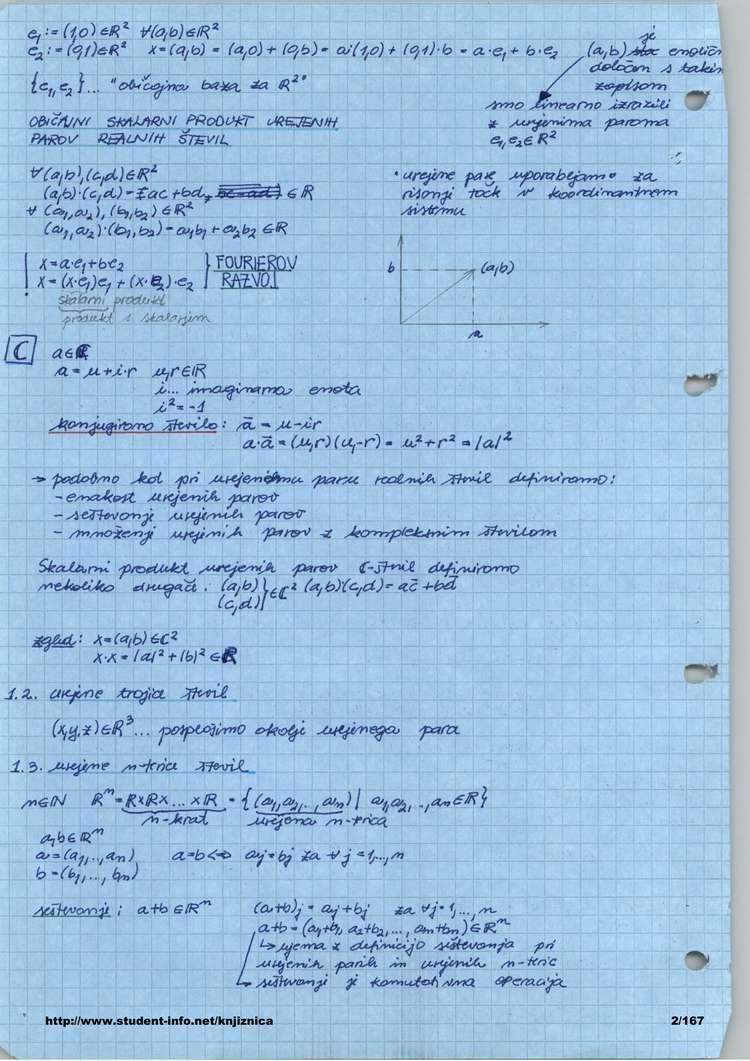 e₁ := (1,0) ∈ ℝ² ∀(a,b) ∈ ℝ²
e₂ := (0,1) ∈ ℝ² x = (a,b) = (a,0) + (0,b) = a·(1,0) + (0,1)·b = a·e₁ + b·e₂
{e₁, e₂} ... "običajna baza za ℝ²"
je
(a,b) enolično
določen s takim
zapisom
smo linearno izrazili
z urejenima paroma
e₁, e₂ ∈ ℝ²
OBIČAJNI SKALARNI PRODUKT UREJENIH
PAROV REALNIH ŠTEVIL
∀(a,b), (c,d) ∈ ℝ²
(a,b)·(c,d) = ac + bd ∈ ℝ
∀ (a₁,a₂), (b₁,b₂) ∈ ℝ²
(a₁,a₂)·(b₁,b₂) = a₁b₁ + a₂b₂ ∈ ℝ
• urejene pare uporabljamo za
risanje točk v koordinantnem
sistemu
x = a·e₁ + b·e₂
x = (x·e₁)e₁ + (x·e₂)·e₂
FOURIEROV
RAZVOJ
skalarni produkt
produkt s skalarjem
b
(a,b)
a
ℂ a ∈ ℂ
a = u + i·v u,v ∈ ℝ
i... imaginarna enota
i² = -1
konjugirano število: ā = u - iv
a·ā = (u,v)(u,-v) = u² + v² = |a|²
→ podobno kot pri urejenemu paru realnih števil definiramo:
- enakost urejenih parov
- seštevanje urejenih parov
- množenje urejenih parov z kompleksnim številom
Skalarni produkt urejenih parov ℂ-števil definiramo
nekoliko drugače: (a,b)
(c,d) } ∈ ℂ² (a,b)(c,d) = ac̄ + bd̄
zgled: x = (a,b) ∈ ℂ²
x·x = |a|² + |b|² ∈ ℝ
1.2. urejene trojice števil
(x,y,z) ∈ ℝ³ ... posplošimo okolje urejenega para
1.3. urejene n-terice števil
n ∈ ℕ ℝⁿ = ℝ×ℝ×...×ℝ = {(a₁,a₂,..,aₙ) | a₁,a₂,..,aₙ ∈ ℝ}
n-krat urejena n-terica
a,b ∈ ℝⁿ
a = (a₁,..,aₙ) a = b ⇔ aj = bj za ∀ j = 1,...,n
b = (b₁,...,bₙ)
seštevanje: a+b ∈ ℝⁿ (a+b)j = aj + bj za ∀j = 1,...,n
a+b = (a₁+b₁, a₂+b₂,..., aₙ+bₙ) ∈ ℝⁿ
↳ ujema z definicijo seštevanja pri
urejenih parih in urejenih n-teric
→ seštevanje je komutativna operacija
http://www.student-info.net/knjiznica
2/167